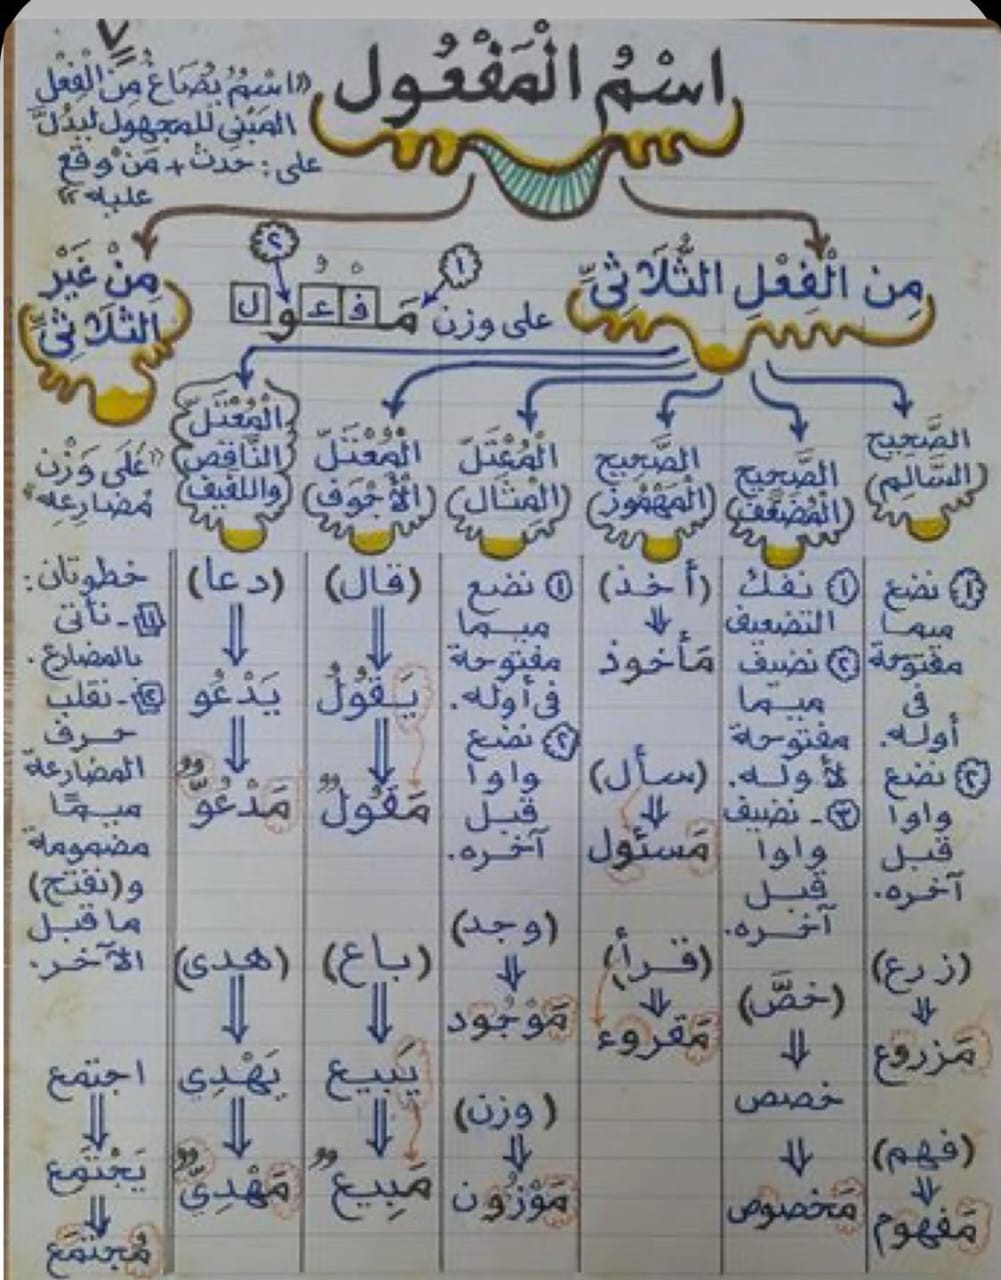 اسْمُ الْمَفْعُول
٧
«اسْمٌ يُصَاغُ مِنَ الْفِعْلِ
المَبْنِى للمجهول لِيَدُلَّ
على: حدث + مَنْ وقع
عليه»
مِن الْفِعْلِ الثُّلَاثِىِّ
على وزن
مَفْعُول
١
٢
مِنْ غَيْرِ
الثلَاثِىِّ
الصَّحِيح
(السَّالِم)
١ نضع
ميما
مفتوحة
فى
أوله.
٢ نضع
واوا
قبل
آخره.
(زرع)
مَزروع
(فهم)
مَفهوم
الصَّحِيح
(الْمُضَعَّف)
١ نفك
التضعيف
٢ نضيف
ميما
مفتوحة
لأوله.
٣- نضيف
واوا
قبل
آخره.
(خصَّ)
خصص
مَخصوص
الصَّحِيح
(الْمَهْمُوز)
(أخذ)
مَأخوذ
(سأل)
مَسئول
(قرأ)
مَقروء
الْمُعْتَلّ
(الْمِثَال)
١ نضع
ميما
مفتوحة
فى أوله.
٢ نضع
واوا
قبل
آخره.
(وجد)
مَوْجُود
(وزن)
مَوْزُون
الْمُعْتَلّ
(الْأَجْوَف)
(قال)
يَقُولُ
مَقُول
(باع)
يَبيع
مَبِيع
الْمُعْتَلّ
النَّاقِص
واللفيف
(دعا)
يَدْعُو
مَدْعُوّ
(هدى)
يَهْدِي
مَهْدِيّ
«عَلَى وَزْن
مُضَارِعِهِ»
خطوتان:
١- نأتى
بالمضارع.
٢- نقلب
حرف
المضارعة
ميمًا
مضمومة
و(نفتح)
ما قبل
الآخر.
اجتمع
يَجْتَمع
مُجتمَع